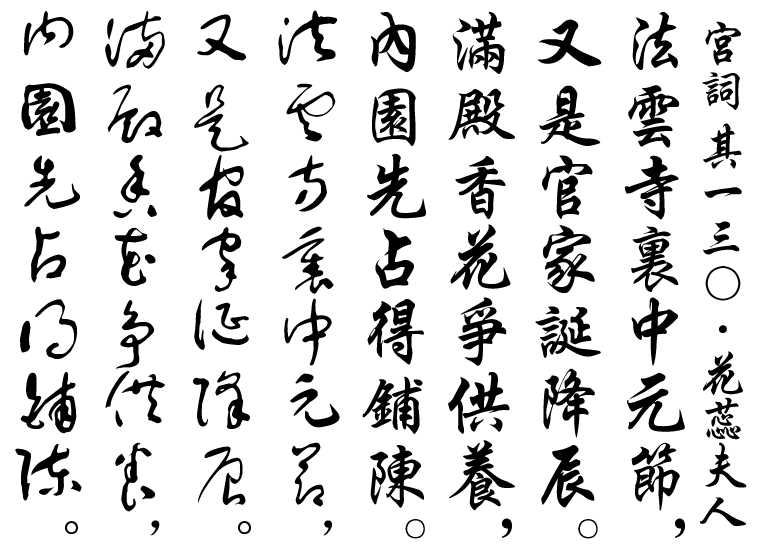 宮詞 其一三〇・花蕊夫人
法雲寺裏中元節，
又是官家誕降辰。
滿殿香花爭供養，
內園先占得鋪陳。
法雲寺裏中元節，
又是官家誕降辰。
滿殿香花爭供養，
內園先占得鋪陳。